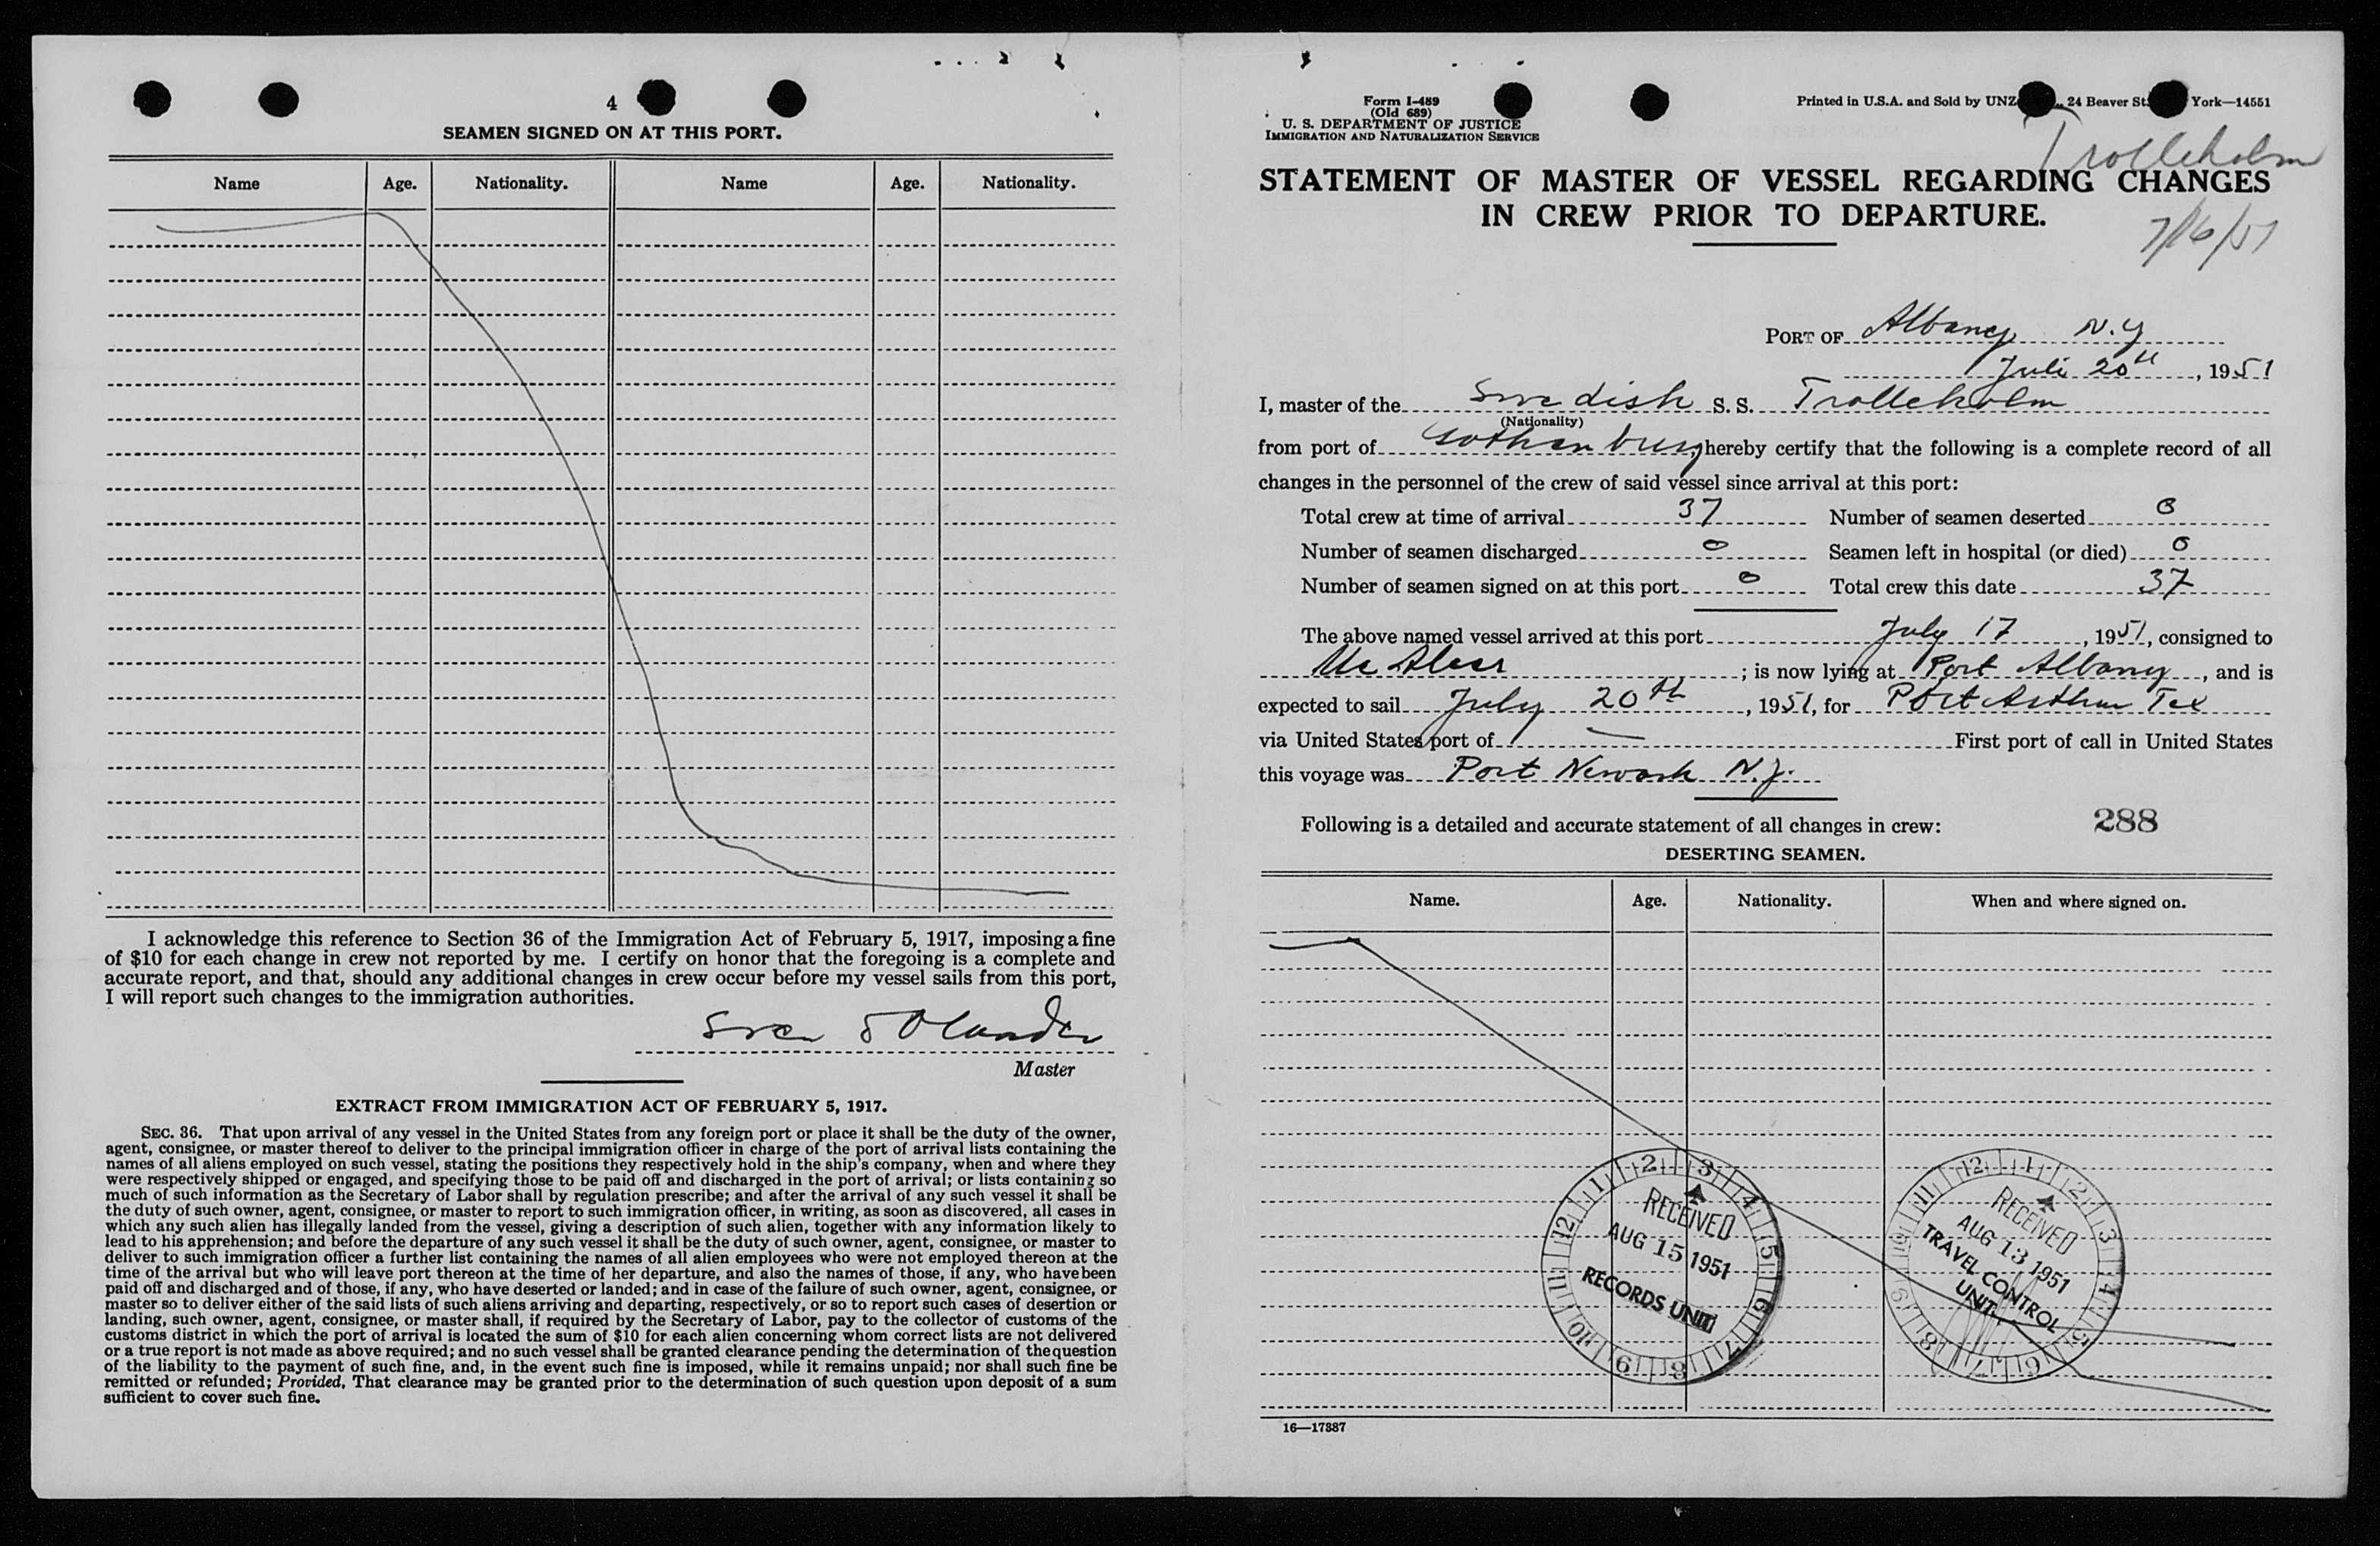 4
SEAMEN SIGNED ON AT THIS PORT.
Name Age. Nationality. Name Age. Nationality.
I acknowledge this reference to Section 36 of the Immigration Act of February 5, 1917, imposing a fine
of $10 for each change in crew not reported by me. I certify on honor that the foregoing is a complete and
accurate report, and that, should any additional changes in crew occur before my vessel sails from this port,
I will report such changes to the immigration authorities.
Sven S Olander
Master
EXTRACT FROM IMMIGRATION ACT OF FEBRUARY 5, 1917.
SEC. 36. That upon arrival of any vessel in the United States from any foreign port or place it shall be the duty of the owner,
agent, consignee, or master thereof to deliver to the principal immigration officer in charge of the port of arrival lists containing the
names of all aliens employed on such vessel, stating the positions they respectively hold in the ship's company, when and where they
were respectively shipped or engaged, and specifying those to be paid off and discharged in the port of arrival; or lists containing so
much of such information as the Secretary of Labor shall by regulation prescribe; and after the arrival of any such vessel it shall be
the duty of such owner, agent, consignee, or master to report to such immigration officer, in writing, as soon as discovered, all cases in
which any such alien has illegally landed from the vessel, giving a description of such alien, together with any information likely to
lead to his apprehension; and before the departure of any such vessel it shall be the duty of such owner, agent, consignee, or master to
deliver to such immigration officer a further list containing the names of all alien employees who were not employed thereon at the
time of the arrival but who will leave port thereon at the time of her departure, and also the names of those, if any, who have been
paid off and discharged and of those, if any, who have deserted or landed; and in case of the failure of such owner, agent, consignee, or
master so to deliver either of the said lists of such aliens arriving and departing, respectively, or so to report such cases of desertion or
landing, such owner, agent, consignee, or master shall, if required by the Secretary of Labor, pay to the collector of customs of the
customs district in which the port of arrival is located the sum of $10 for each alien concerning whom correct lists are not delivered
or a true report is not made as above required; and no such vessel shall be granted clearance pending the determination of the question
of the liability to the payment of such fine, and, in the event such fine is imposed, while it remains unpaid; nor shall such fine be
remitted or refunded; Provided, That clearance may be granted prior to the determination of such question upon deposit of a sum
sufficient to cover such fine.
Form I-489
(Old 689)
U. S. DEPARTMENT OF JUSTICE
IMMIGRATION AND NATURALIZATION SERVICE
Printed in U.S.A. and Sold by UNZ 24 Beaver St. York—14551
Trolleholm
STATEMENT OF MASTER OF VESSEL REGARDING CHANGES
IN CREW PRIOR TO DEPARTURE.
7/16/51
PORT OF Albany N.Y
Juli 20th, 1951
I, master of the Swedish S. S. Trolleholm
(Nationality)
from port of Gothenburg, hereby certify that the following is a complete record of all
changes in the personnel of the crew of said vessel since arrival at this port:
Total crew at time of arrival 37 Number of seamen deserted 0
Number of seamen discharged 0 Seamen left in hospital (or died) 0
Number of seamen signed on at this port 0 Total crew this date 37
The above named vessel arrived at this port July 17, 1951, consigned to
; is now lying at Port Albany, and is
expected to sail July 20th, 1951, for Port Arthur Tex
via United States port of — First port of call in United States
this voyage was Port Newark N.J.
Following is a detailed and accurate statement of all changes in crew: 288
DESERTING SEAMEN.
Name. Age. Nationality. When and where signed on.
RECEIVED
AUG 15 1951
RECORDS UNIT
RECEIVED
AUG 13 1951
TRAVEL CONTROL
UNIT
16—17887